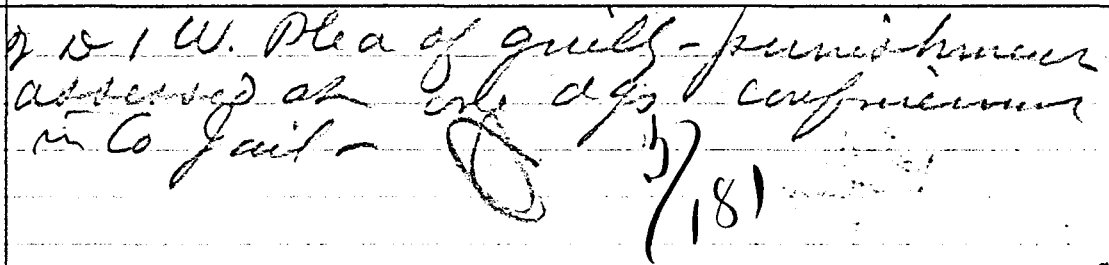 D I W. Plea of guilty - punishment
assessed at one dys confinement
in Co Jail -
5/181